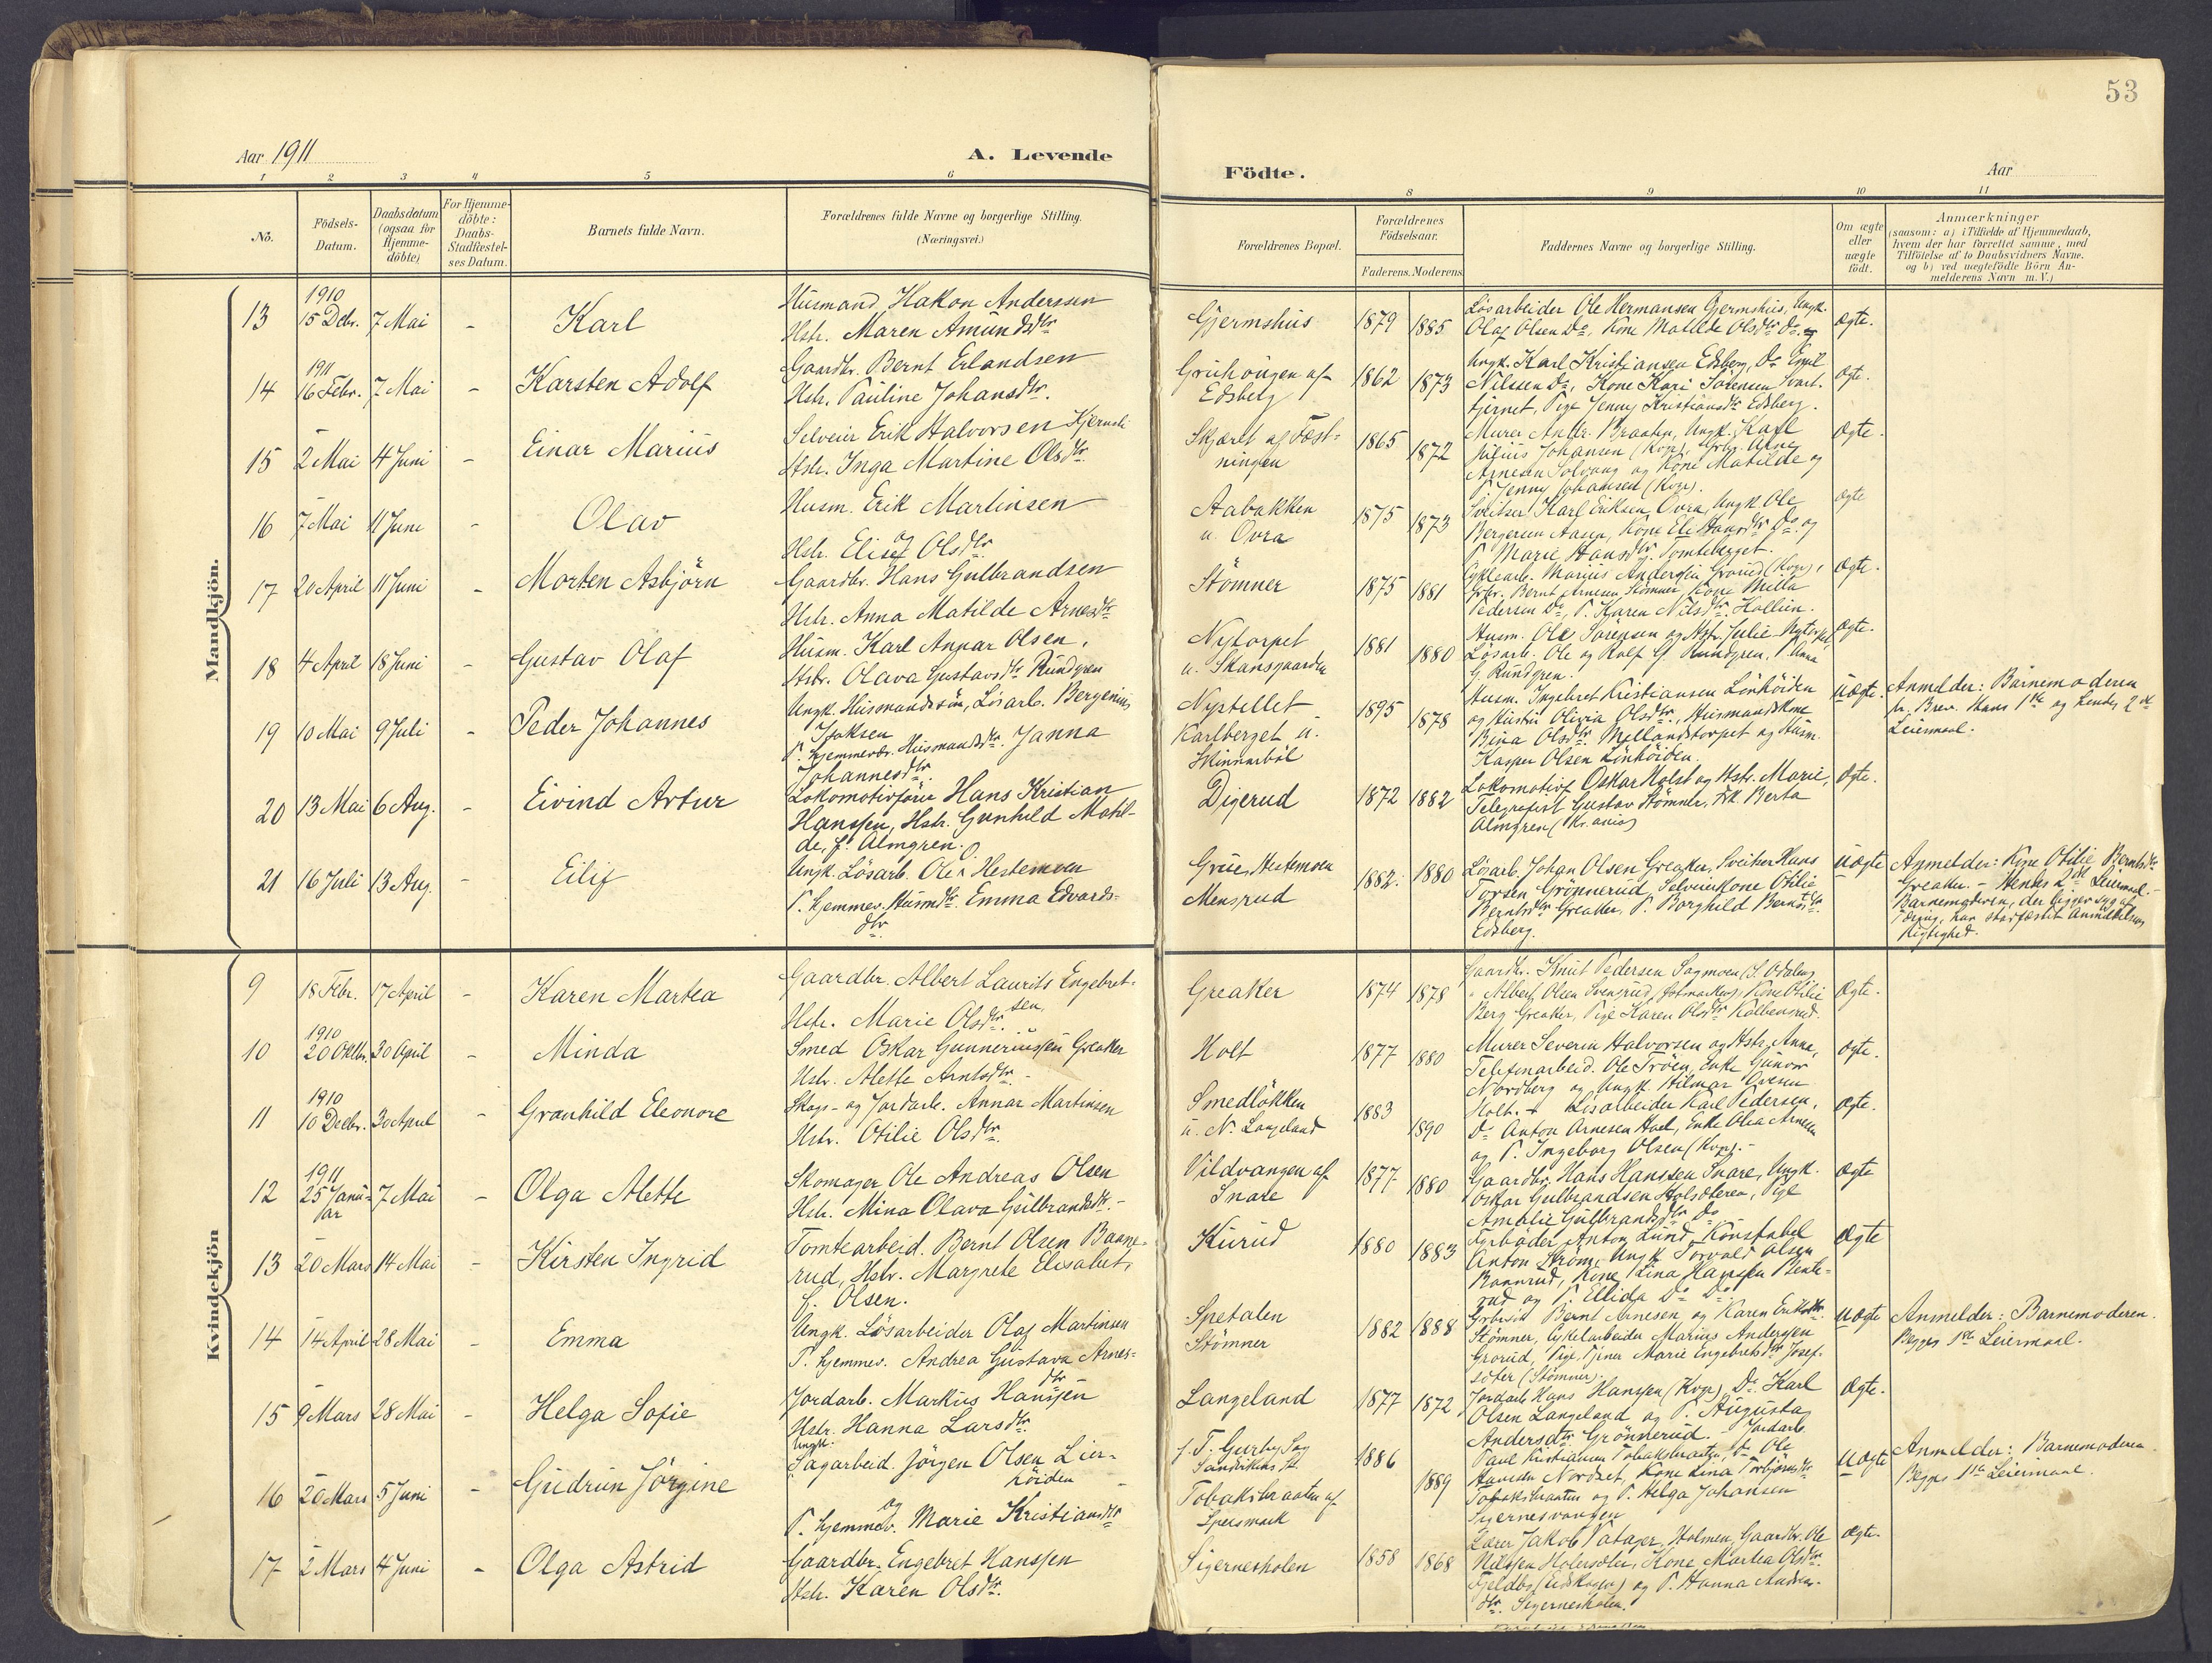 53
Aar 1911
A. Levende
Födte.
Aar
1 2 3 4 5 6 8 9 10 11
No.
Födsels-
Datum.
Daabsdatum
(ogsaa for
Hjemme-
döbte)
For Hjemme-
döbte:
Daabs-
Stadfæstel-
ses Datum.
Barnets fulde Navn.
Forældrenes fulde Navne og borgerlige Stilling.
(Næringsvei.)
Forældrenes Bopæl.
Forældrenes
Födselsaar.
Faderens. Moderens
Faddernes Navne og borgerlige Stilling.
Om ægte
eller
uægte
födt.
Anmærkninger
(saasom: a) i Tilfælde af Hjemmedaab,
hvem der har forrettet samme, med
Tilföielse af to Daabsvidners Navne.
og b) ved uægtefödte Börn An-
melderens Navn m.V.)
Mandkjön.
13
1910
15 Decbr.
7 Mai
-
Karl
Husmand Hakon Anderssen
Hstr. Maren Amundsdtr
Gjermshus
1879
1885
Lösarbeider Ole Hermansen Gjermshus, Ungk.
Olaf Olsen Do, Kone Matilde Olsdtr Do. og
Ægte.
14
1911
16 Febr.
7 Mai
-
Karsten Adolf
Gaardbr. Bernt Erlandsen
Hstr. Pauline Johansdtr.
Gruehougen af
Edsberg
1862
1873
Ungk. Karl Kristiansen Edsberg, Do Emil
Nilssen Do, Kone Kari Sörensen Svart-
tjernet, Pige Jenny Kristiansdtr Edsberg.
Ægte.
15
2 Mai
4 Juni
-
Einar Marius
Selveier Erik Halvorsen
Hstr. Inga Martine Olsdtr
Skjæret af Fæst-
ningen
1865
1872
Murer Andr. Braaten, Ungk. Karl
Julius Johansen (Kvgr), Grbr. Arne
Arnesen Solvang og Kone Matilde og
P. Jenny Johansen (Kvgr).
Ægte.
16
7 Mai
11 Juni
-
Olav
Husm. Erik Martinsen
og
Hstr. Elise Olsdtr
Aabakken
u. Overa
1875
1873
Sveitser Karl Eriksen Ovra, Ungk. Ole
Bergersen Aasen, Kone Eli Hansdtr Do og
P. Marie Hansdtr Tomteberget.
Ægte
17
20 April
11 Juni
-
Morten Asbjörn
Gaardbr. Hans Gulbrandsen
Hstr. Anna Matilde Arnesdtr
Stömner
1875
1881
Cyklearb. Marius Andersen Grorud (Kvgr),
Grbr. Bernt Arnesen Stömner, Kone Milla
Pedersen Do, P. Karen Nilsdtr. Hollien.
Ægte.
18
4 April
18 Juni
-
Gustav Olaf
Husm. Karl Annar Olsen,
Hstr. Olava Gustavsdtr Rundgren
Nytorpet
u. Skansgaarden
1881
1880
Husm. Ole Sörensen og Hstr. Julie Nytorpet,
Lösarb. Ole og Rolf G. Rundgren, P. Anna
G. Rundgren.
Ægte.
19
10 Mai
9 Juli
-
Peder Johannes
Ungk. Husmandssön, Lösarb. Bergenius
Isaksen
P. hjemmevær. Husmandsdtr. Janna
Johannesdtr.
Nystellet
Karlberget u.
Skinnarböl
1895
1878
Husm. Ingebret Kristiansen Lönhöiden
og Hustru Olivia Olsdtr., Husmandskone
Bina Olsdtr. Mellandstorpet og Husm.
Kasper Olsen Lönhöiden.
Uægte.
Anmelder: Barnemoderen
pr. Brev. Hans 1ste og hendes 2det
Leiermaal.
20
13 Mai
6 Aug.
-
Eivind Artur
Lokomotivförer Hans Kristian
Hanssen, Hstr. Gunhild Matil-
de, f. Almgren.
Digerud
1872
1882
Lokomotivf. Oskar Holst og Hstr. Marie,
Telegrafist Gustav Stömner, Frk. Berta
Almgren (Kr.ania)
Ægte.
21
16 Juli
13 Aug.
-
Eilif
Ungk. Lösarb. Ole O. Hestemoen
P. hjemmev. Husmdtr. Emma Edvards-
dtr.
Grue, Hestemoen
Mensrud
1882.
1880
Lösarb. Johan Olsen Greaker, Sveitser Hans
Torsen Grönnerud, Selveierkone Otilie
Berntsdtr Greaker, P. Borghild Berntsdtr.
Edsberg.
Uægte
Anmelder: Kone Otilie Berntsdtr
Greaker. - Hendes 2det Leiermaal. -
Barnemoderen, der ligger syg af
Tæring, har stadfæstet Anmeldelsens
Rigtighed.
Kvindekjön
9
18 Febr.
17 April
-
Karen Martea
Gaardbr. Albert Laurits Engebret-
sen
Hstr. Marie Olsdtr.
Greaker
1874
1878
Gaardbr. Knut Pedersen Sagmoen (S. Odalen),
" Albert Olsen Svensrud, Kone Otilie
Berg Greaker, Pige Karen Olsdtr Kolbensrud.
Ægte.
10
1910
20 Oktbr.
30 April
-
Minda
Smed Oskar Gunneriussen Greaker
Hstr. Alette Arntsdtr. -
Holt
1877
1880
Murer Severin Halvorsen og Hstr. Anna,
Telefonarbeid. Ole Tröen, Enke Gunvor
Nordberg og Ungk. Hilmar Ovesen
Holt. -
Ægte.
11
1910
10 Decbr.
30 April
-
Granhild Eleonore
Skogs- og Jordarb. Annar Martinsen
Hstr. Otilie Olsdtr.
Smedlökken
u. N. Langeland
1883
1890
Lösarbeider Karl Pedersen,
Do Anton Arnesen Hoel, Enke Olea Arnesen
og P. Ingeborg Olsen (Kvgr). -
Ægte.
12
1911
25 Janu-
ar
7 Mai
-
Olga Alette
Skomager Ole Andreas Olsen
Hstr. Mina Olava Gulbrandsdtr. -
Vildvangen af
Snare
1877
1880
Gaardbr. Hans Hanssen Snare, Ungk.
Oskar Gulbrandsen Holsæteren, Pige
Amalie Gulbrandsdtr Do
Ægte
13
20 Mars
14 Mai
-
Kirsten Ingrid
Tomtearbeid. Bernt Olsen Baane-
rud, Hstr. Margrete Elisabet,
f. Olsen.
Kurud
1880
1883
Fyrböder Anton Lund, Konstabel
Anton Ström, Ungk. Torvald Olsen
Baanrud, Kone Lina Hanssen Bente-
rud og P. Ellida Do Do
Ægte
14
14 April
28 Mai
-
Emma
Ungk. Lösarbeider Olaf Martinsen
P. hjemmev. Andrea Gustava Arnes-
dtr
Spetalen
Stömner
1882
1888
Bernt Arnesen og Karen Eriksdtr.
Stömner, Cykelarbeider Marius Andersen
Grorud, Pige, Tjener Marie Engebretsdtr Josef-
sæter (Stömner).
Uægte
Anmelder: Barnemoderen.
Begges 1ste Leiermaal.
15
9 Mars
28 Mai
-
Helga Sofie
Jordarb. Markus Hanssen
Hstr. Hanna Larsdtr.
Langeland
1877
1872
Jordarb. Hans Hanssen (Kvgr), Do. Karl
Olsen Langeland og P. Augusta
Andersdtr Grönnerud.
Ægte.
16
20 Mars
5 Juni
-
Gudrun Jörgine
Ungk.
Sagarbeid. Jörgen Olsen Lier-
höiden
og
P. hjemmev. Marie Kristiansdtr
Tobaksbraaten af
Spersmark
1886
1889
Jordarb.
Paul Kristiansen Tobaksbraaten, Do Ole
Hansen Nordset, Kone Lina Torbjörnsdtr
Tobaksbraaten og P. Helga Johansen
Sigernesvangen
Uægte
Anmelder: Barnemoderen
Begges 1ste Leiermaal.
17
2 Mars
4 Juni
-
Olga Astrid
Gaardbr. Engebret Hanssen
Hstr. Karen Olsdtr.
Sigernesholen
1858
1868
Lærer Jakob Holmen, Gaardbr. Ole
Nilssen Holersæter, Kone Martea Olsdtr
Fjeldby (Eidskogen) og P. Hanna Andreas-
dtr. Sigernesholen.
Ægte.